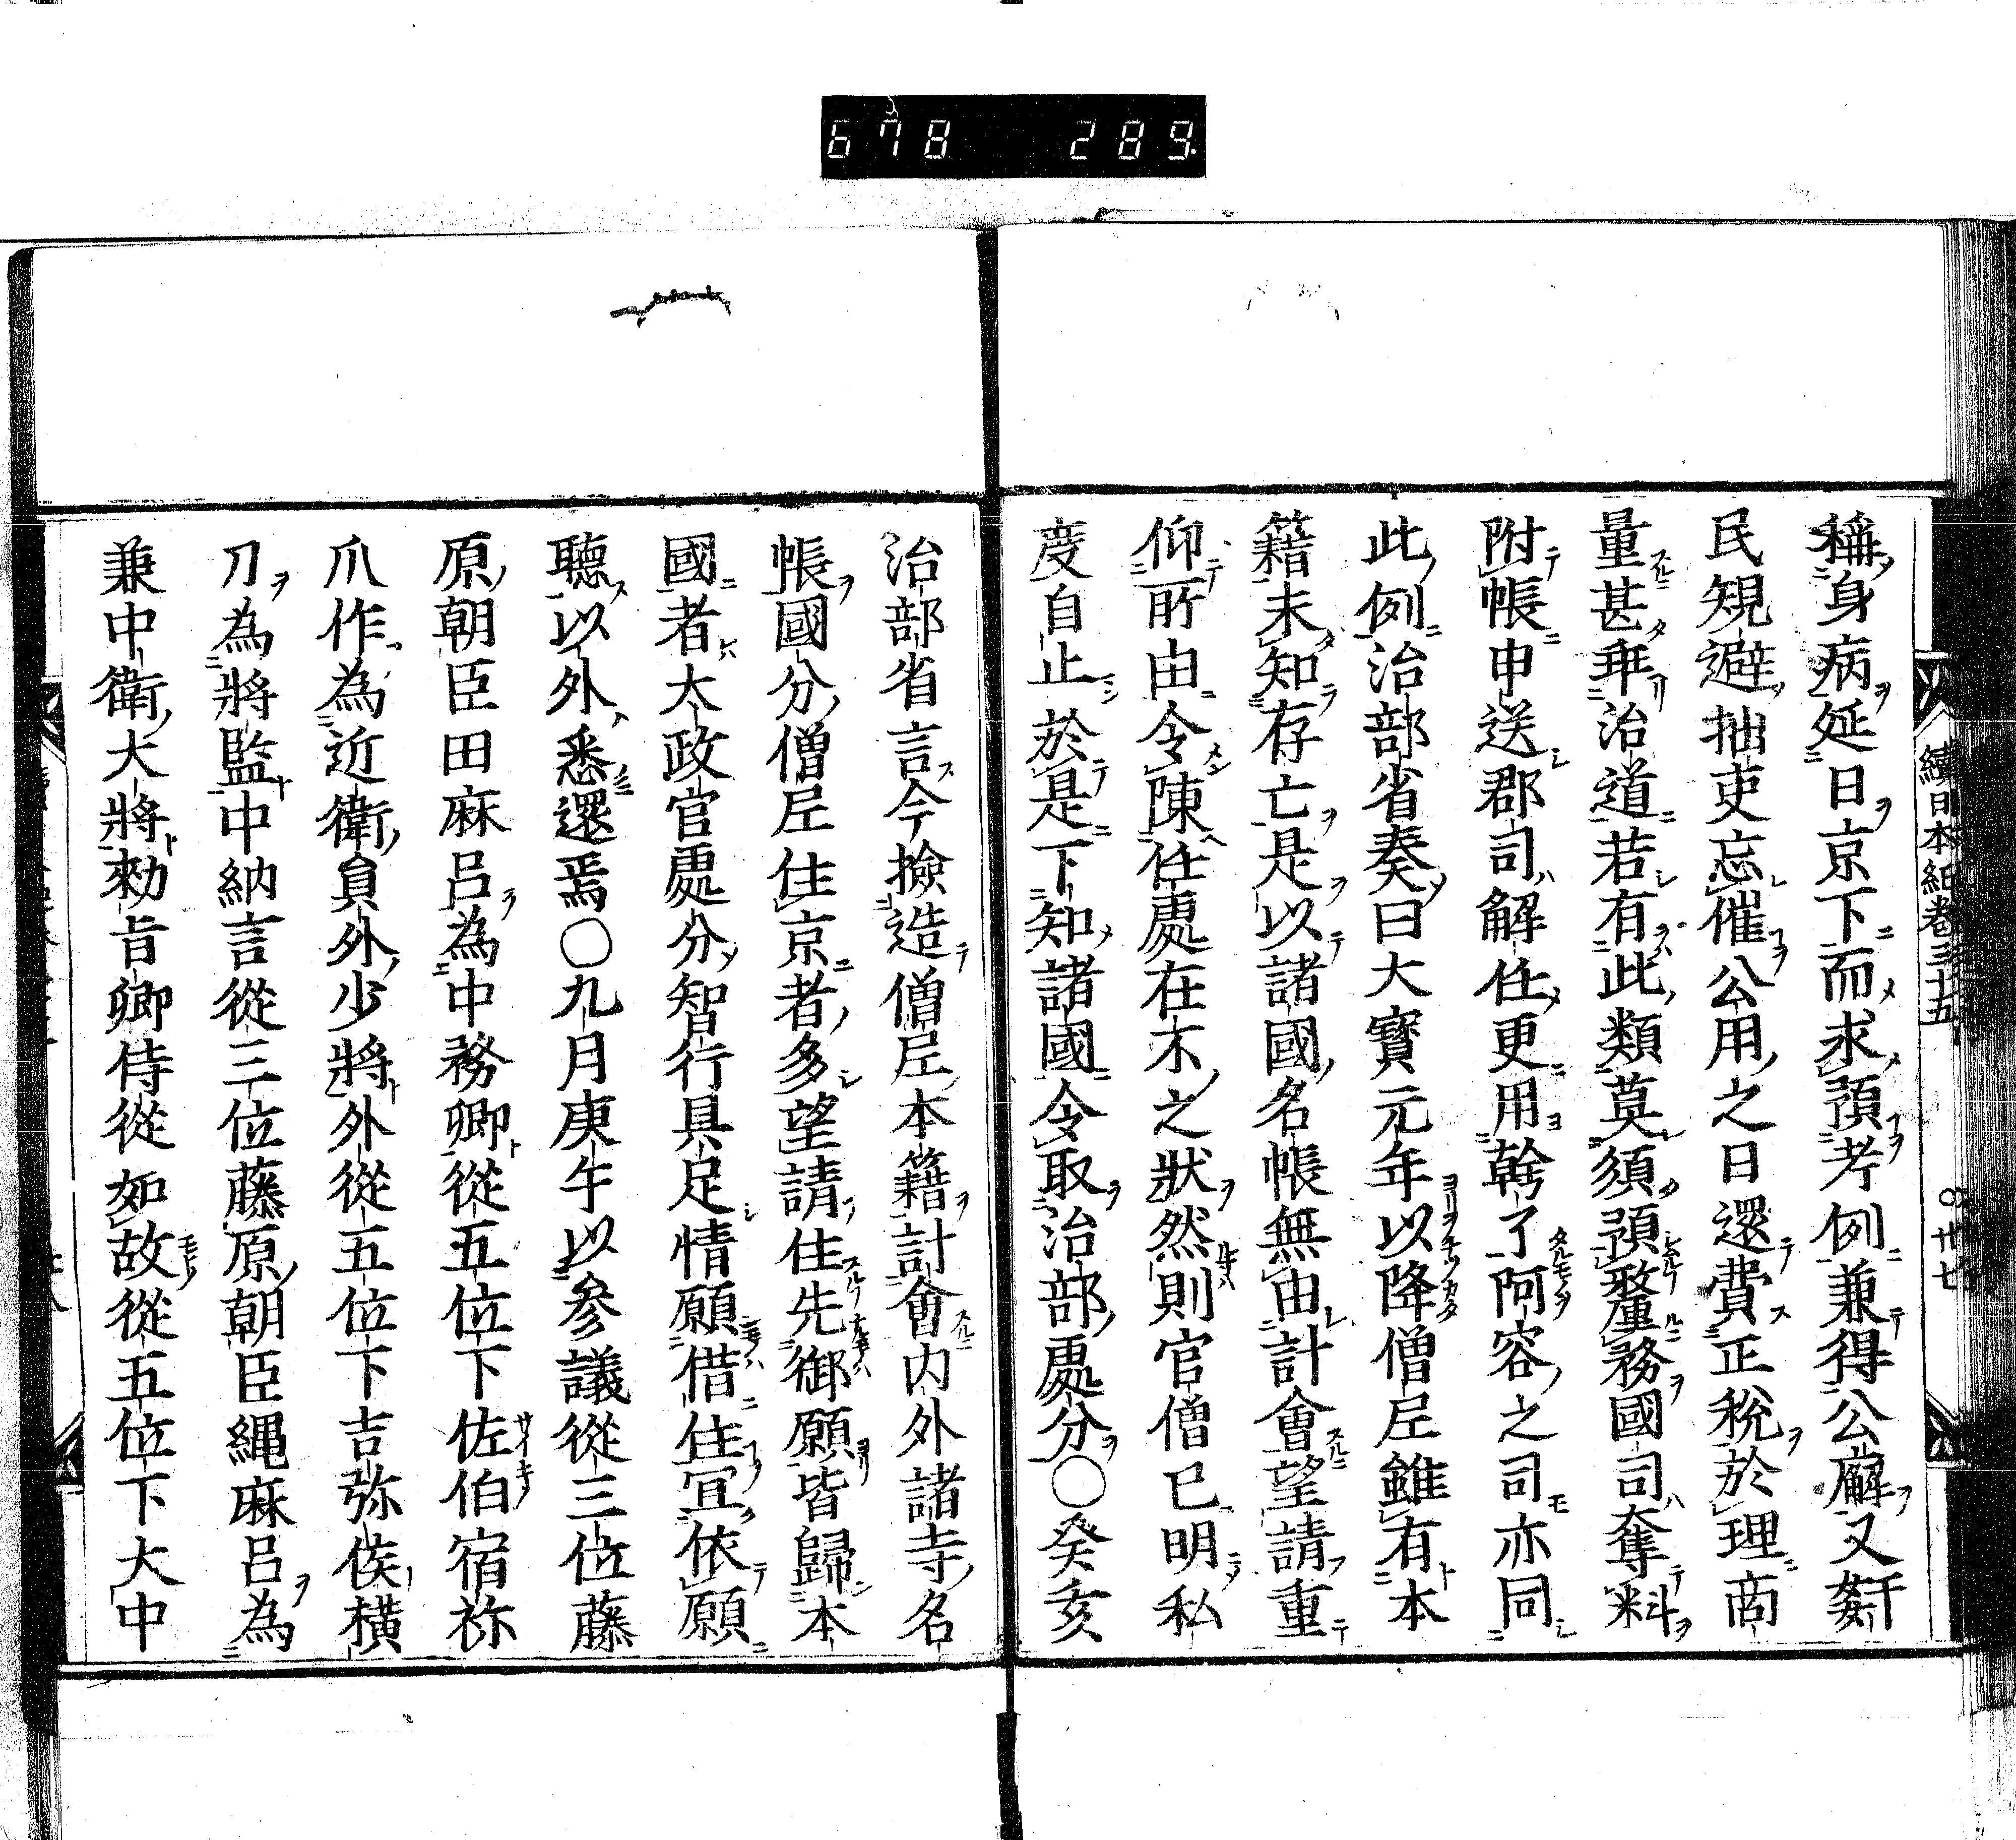 678 289
續日本紀卷三十五 〇廿七
稱身病延日京下而求預考例兼得公廨又姧
民規避拙吏忘催公用之日還費正稅於理商
量甚乖治道若有此類莫須預釐務國司奪料
附帳申送郡司解任更用幹了阿容之司亦同
此例治部省奏曰大寶元年以降僧尼雖有本
籍未知存亡是以諸國名帳無由計會望請重
仰所由令陳住處在不之狀然則官僧已明私
度自止於是下知諸國令取治部處分〇癸亥
治部省言今撿造僧尼本籍計會内外諸寺名
帳國分僧尼住京者多望請住先御願皆歸本
國者太政官處分智行具足情願借住宜依願
聽以外悉還焉〇九月庚午以參議從三位藤
原朝臣田麻呂為中務卿從五位下佐伯宿祢
爪作為近衛員外少將外從五位下吉弥侯横
刀為將監中納言從三位藤原朝臣縄麻呂為
兼中衛大將勅旨卿侍從如故從五位下大中